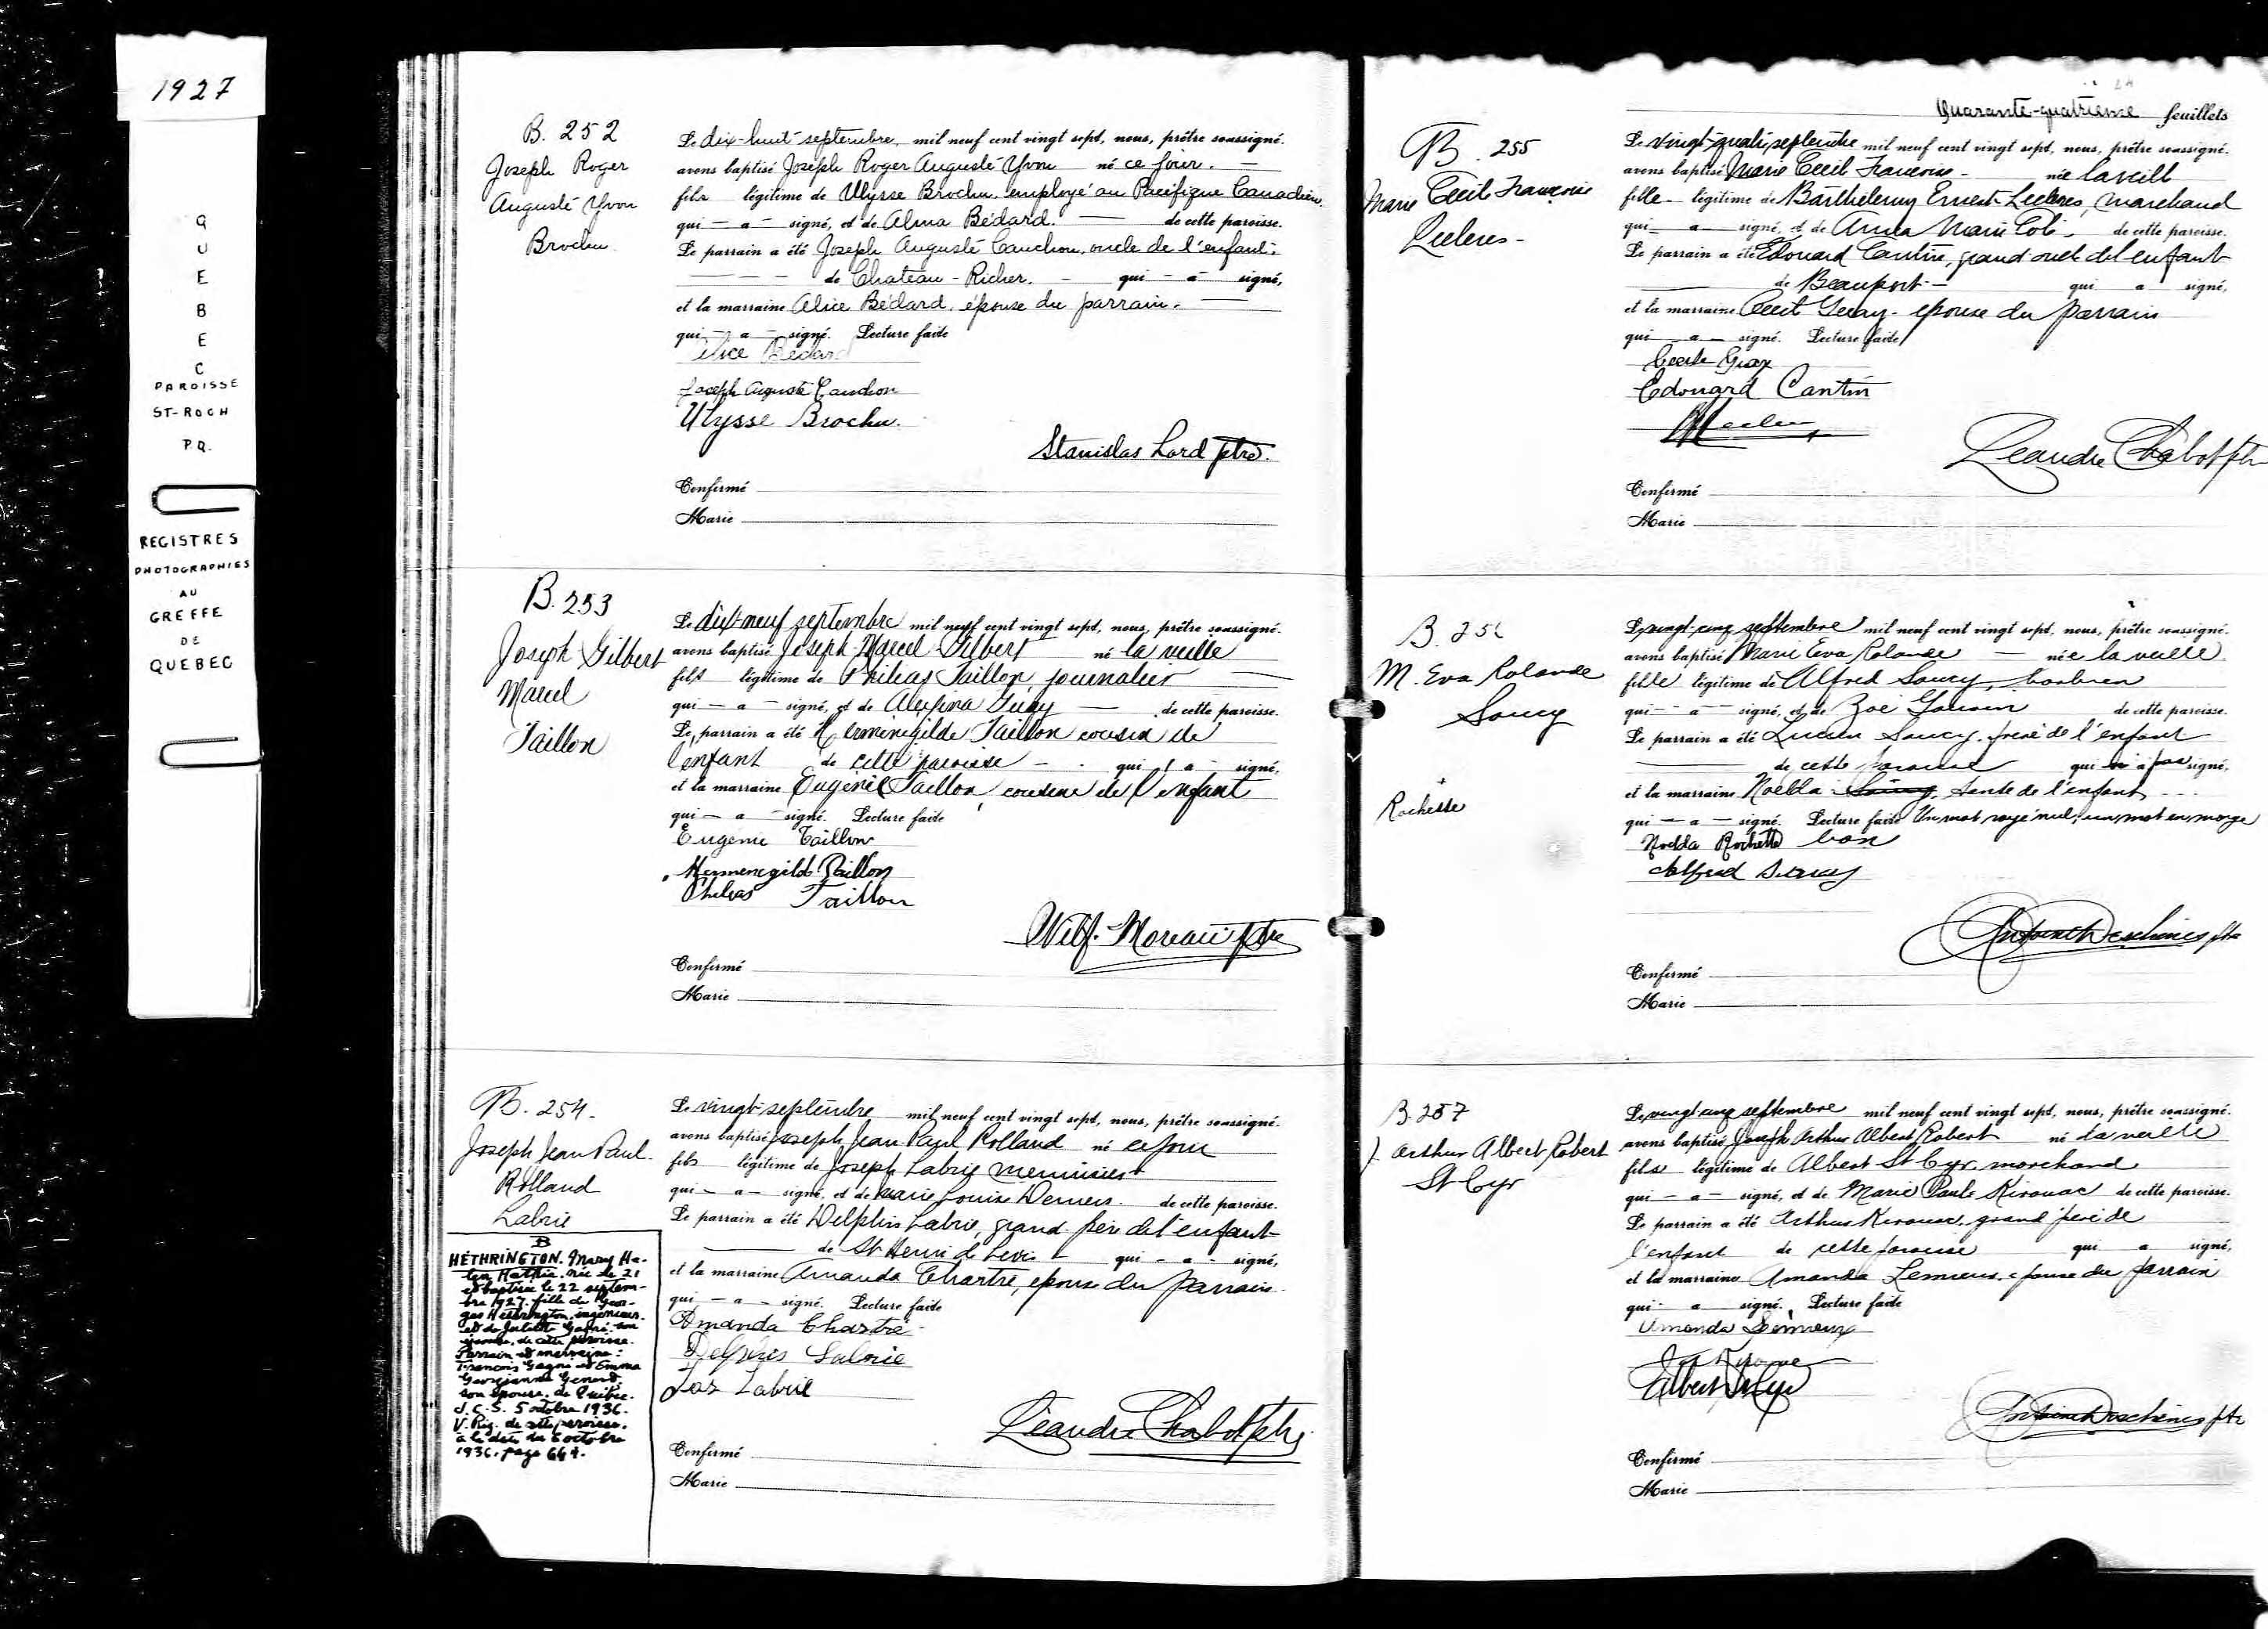 1927
QUEBEC
PAROISSE
ST-ROCH
P.Q.
REGISTRES
PHOTOGRAPHIES
AU
GREFFE
DE
QUEBEC
B. 252
Joseph Roger
Auguste Yvon
Brochu
Le dix-huit septembre mil neuf cent vingt sept, nous, prêtre soussigné.
avons baptisé Joseph Roger Auguste Yvon né ce jour.
fils légitime de Ulysse Brochu employé au Pacifique Canadien
qui - a - signé, et de Alma Bédard. de cette paroisse.
Le parrain a été Joseph Auguste Cauchon, oncle de l'enfant.
de Chateau-Richer. - qui - a - signé,
et la marraine Alice Bédard, épouse du parrain.
qui - a - signé. Lecture faite
Alice Bédard
Joseph Auguste Cauchon
Ulysse Brochu.
Stanislas Lord ptre.
Confirmé
Marié
B. 253
Joseph Gilbert
Marcel
Taillon
Le dix-neuf septembre mil neuf cent vingt sept, nous, prêtre soussigné.
avons baptisé Joseph Marcel Gilbert né la veille
fils légitime de Philias Taillon, journalier
qui - a - signé, et de Alexina de cette paroisse.
Le parrain a été Herménégilde Taillon cousin de
l'enfant de cette paroisse - qui - a - signé,
et la marraine Eugénie Taillon, cousine de l'enfant
qui - a - signé. Lecture faite
Eugénie Taillon
Hermenegilde Taillon
Philias Taillon
Wilf. Moreau ptre
Confirmé
Marié
B. 254.
Joseph Jean Paul
Rolland
Labrie
Le vingt septembre mil neuf cent vingt sept, nous, prêtre soussigné.
avons baptisé Joseph Jean Paul Rolland né ce jour
fils légitime de Joseph Labrie menuisier
qui - a - signé, et de Marie Louise Demers. de cette paroisse.
Le parrain a été Delphis Labrie, grand-père de l'enfant
de St Henri de Levis - qui - a - signé,
et la marraine Amanda Chartré, epouse du parrain.
qui - a - signé. Lecture faite
Amanda Chartré
Delphis Labrie
Jos Labrie
Léandre Chabot ptre
Confirmé
Marié
B
HETHRINGTON. Mary He-
len Hattie. née le 21
et baptisée le 22 septem-
bre 1927. fille de Geor-
ges Hethrington, ingénieur.
et de Juliette Gagné. son
épouse. de cette paroisse.
Parrain et marraine:
François Gagné et Emma
Georgianna
son épouse. de Québec.
J.C.S. 5 octobre 1936.
V. Reg. de cette paroisse.
à la date du 6 octobre
1936. page 664.
Quarante-quatrième feuillets
B. 255
Marie Cecil Françoise
Leclerc
Le vingt-quatre septembre mil neuf cent vingt sept, nous, prêtre soussigné.
avons baptisé Marie Cecil Francoise - née la veille
fille légitime de Barthelemy Ernest Leclerc, marchand
qui - a - signé, et de Anna Marie de cette paroisse.
Le parrain a été Edouard Cantin, grand oncle de l'enfant
de Beauport - qui a signé,
et la marraine Cecil epouse du parrain
qui - a - signé. Lecture faite
Edouard Cantin
Léandre Chabot ptre
Confirmé
Marié
B. 256
M. Eva Rolande
Soucy
Rochette
Le vingt-cinq septembre mil neuf cent vingt sept, nous, prêtre soussigné.
avons baptisé Marie Eva Rolande - née la veille
fille légitime de Alfred Soucy, barbier
qui - a - signé, et de Zoé de cette paroisse.
Le parrain a été Lucien Soucy, frère de l'enfant
de cette paroisse qui n'a pas signé,
et la marraine Noëlla Soucy, tante de l'enfant
qui - a - signé. Lecture faite Un mot rayé nul, un mot en marge
bon
Noëlla Rochette
Alfred Soucy
Antoine Deschênes ptre
Confirmé
Marié
B. 257
J. Arthur Albert Robert
St Cyr
Le vingt cinq septembre mil neuf cent vingt sept, nous, prêtre soussigné.
avons baptisé Joseph Arthur Albert Robert né la veille
fils légitime de Albert St Cyr, marchand
qui - a - signé, et de Marie Paule Kirouac de cette paroisse.
Le parrain a été Arthur Kirouac, grand père de
l'enfant de cette paroisse qui a signé,
et la marraine Amanda Lemieux, épouse du parrain
qui a signé. Lecture faite
Amanda Lemieux
Albert St Cyr
Antoine Deschênes ptre
Confirmé
Marié